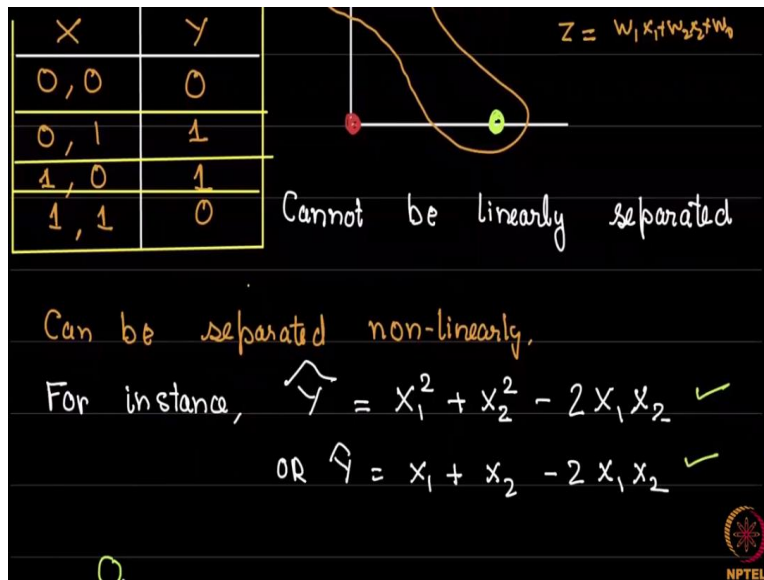 X Y
Z = W₁X₁+W₂X₂+W₀
0,0 0
0,1 1
1,0 1
1,1 0
Cannot be linearly separated
Can be separated non-linearly.
For instance, Ŷ = X₁² + X₂² - 2X₁X₂ ✓
OR Ŷ = X₁ + X₂ - 2X₁X₂ ✓
NPTEL